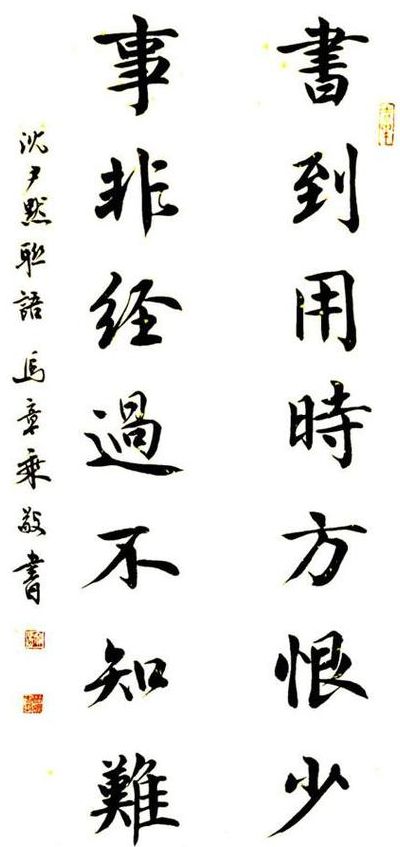 書到用時方恨少
事非经過不知難
沈尹默联語 馬章乘敬書